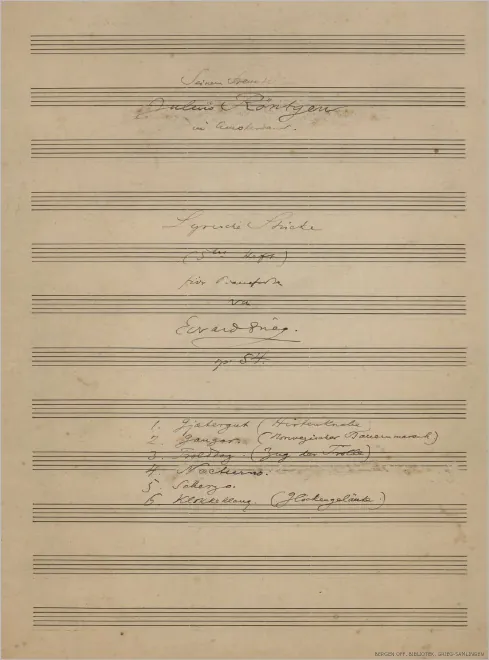 Seinem Freunde
Julius Röntgen
in Amsterdam.
Lyrische Stücke
(5tes Heft)
für Pianoforte
von
Edvard Grieg.
op. 54.
1. Gjætergut (Hirtenknabe)
2. Gangar. (Norwegischer Bauernmarsch)
3. Troldtog. (Zug der Trolle)
4. Notturno.
5. Scherzo.
6. Klokkeklang. (Glockengeläute.)
BERGEN OFF. BIBLIOTEK, GRIEG-SAMLINGEN